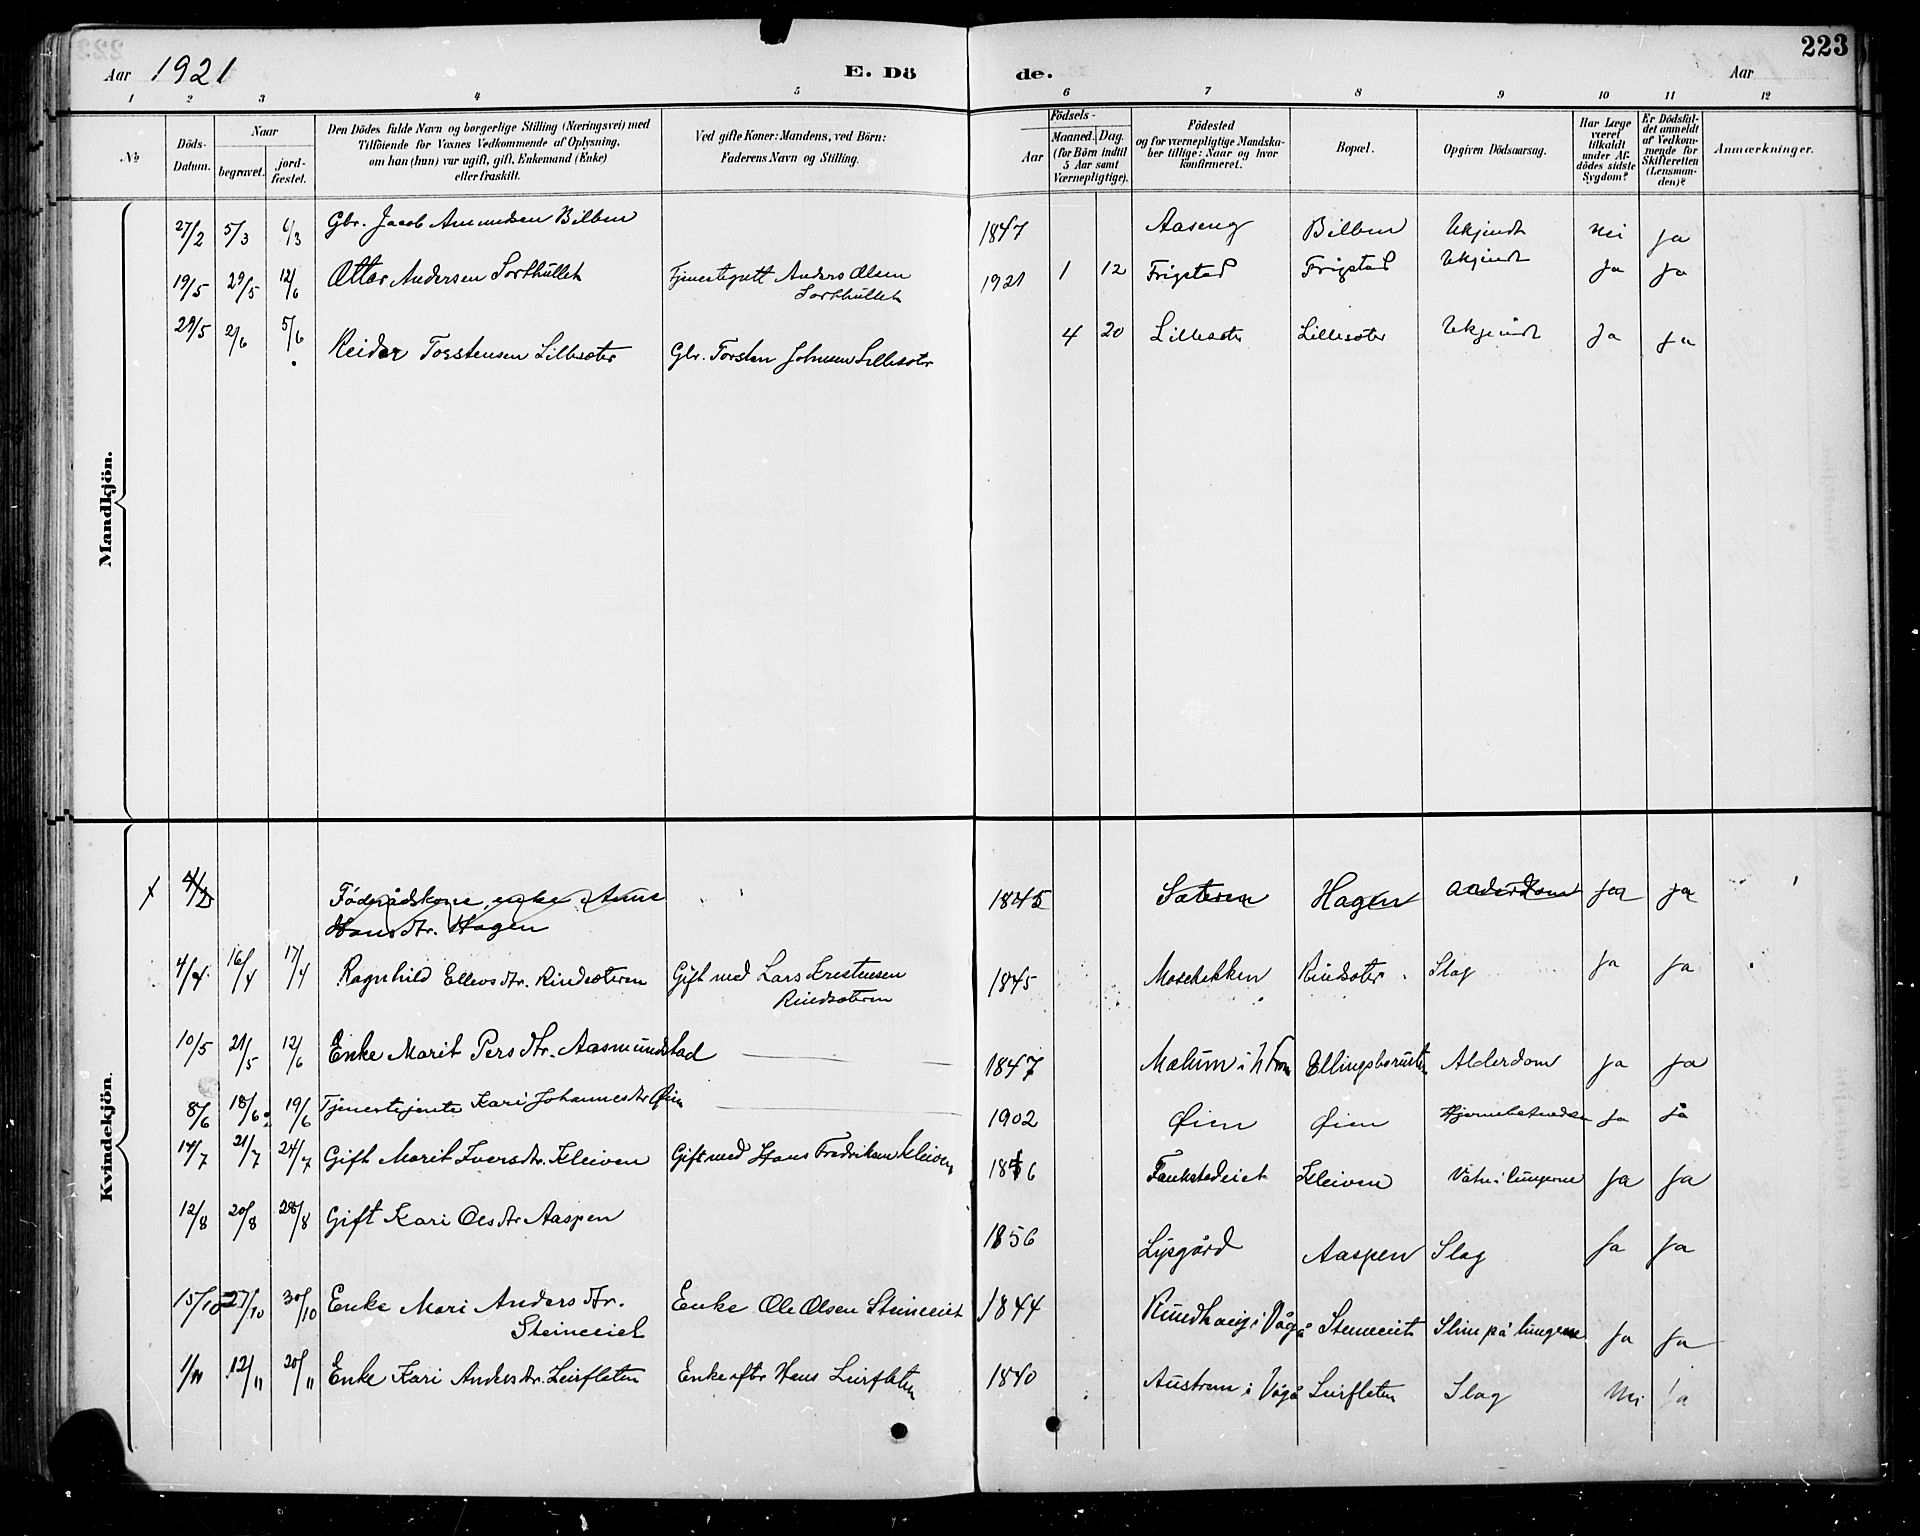 223
Aar 1921 E. Dö de. Aar
1 2 3 4 5 6 7 8 9 10 11 12
№
Döds-
Datum.
Naar
begravet.
jord-
fæstet.
Den Dödes fulde Navn og borgerlige Stilling (Næringsvei) med
Tilföiende for Voxnes Vedkommende af Oplysning,
om han (hun) var ugift, gift, Enkemand (Enke)
eller fraskilt.
Ved gifte Koner: Mandens, ved Börn:
Faderens Navn og Stilling.
Födsels-
Aar
Maaned. Dag.
(for Börn indtil
5 Aar samt
Værnepligtige).
Födested
og for værnepligtige Mandska-
ber tillige: Naar og hvor
konfirmeret.
Bopæl.
Opgiven Dödsaarsag.
Har Læge
været
tilkaldt
under Af-
dödes sidste
Sygdom?
Er Dödsfal-
det anmeldt
af Vedkom-
mende for
Skifteretten
(Lensman-
den)?
Anmærkninger.
Mandkjön.
27/2 5/3 6/3 Gbr. Jacob Amundsen Bilben 1847 Aaseng Bilben Ukjendt Nei Ja
19/5 29/5 12/6 Ottar Andersen Sorthullet Tjenestegutt Anders Olsen
Sorthullet 1921 1 12 Frigstad Frigstad Ukjendt Ja Ja
29/5 2/6 5/6 Reidar Torstensen Lillesæter Gbr. Torsten Johnsen Lillesæter 4 20 Lillesæter Lillesæter Ukjendt Ja Ja
Kvindekjön.
4/2 Föderådskone, enke Anne
Hansdtr. Hagen 1845 Sæteren Hagen Alderdom Ja Ja
4/4 16/4 17/4 Ragnhild Ellevsdtr. Rindsæteren Gift med Lars Kristensen
Rindsæteren 1845 Rindsæter Slag Ja Ja
10/5 21/5 12/6 Enke Marit Persdtr. Aasmundstad 1847 Ja Ja
8/6 18/6 19/6 Tjenestejente Kari Johannesdtr Øien 1902 Øien Øien Ja Ja
14/7 21/7 24/7 Gift Marit Iversdtr. Kleiven Gift med Hans Fredriksen Kleiven 1856 Kleiven Vatn i lungerne Ja Ja
12/8 20/8 28/8 Gift Kari Olsdtr Aaspen 1856 Lysgård Aaspen Slag Ja Ja
15/10 27/10 30/10 Enke Mari Andersdtr.
Steinereiet Enke Ole Olsen Steinereiet 1844 Slim på lungene Ja Ja
1/11 12/11 20/11 Enke Kari Andersdtr. Leirfleten Enke efter Hans Leirfleten 1840 Leirfleten Slag Nei Ja